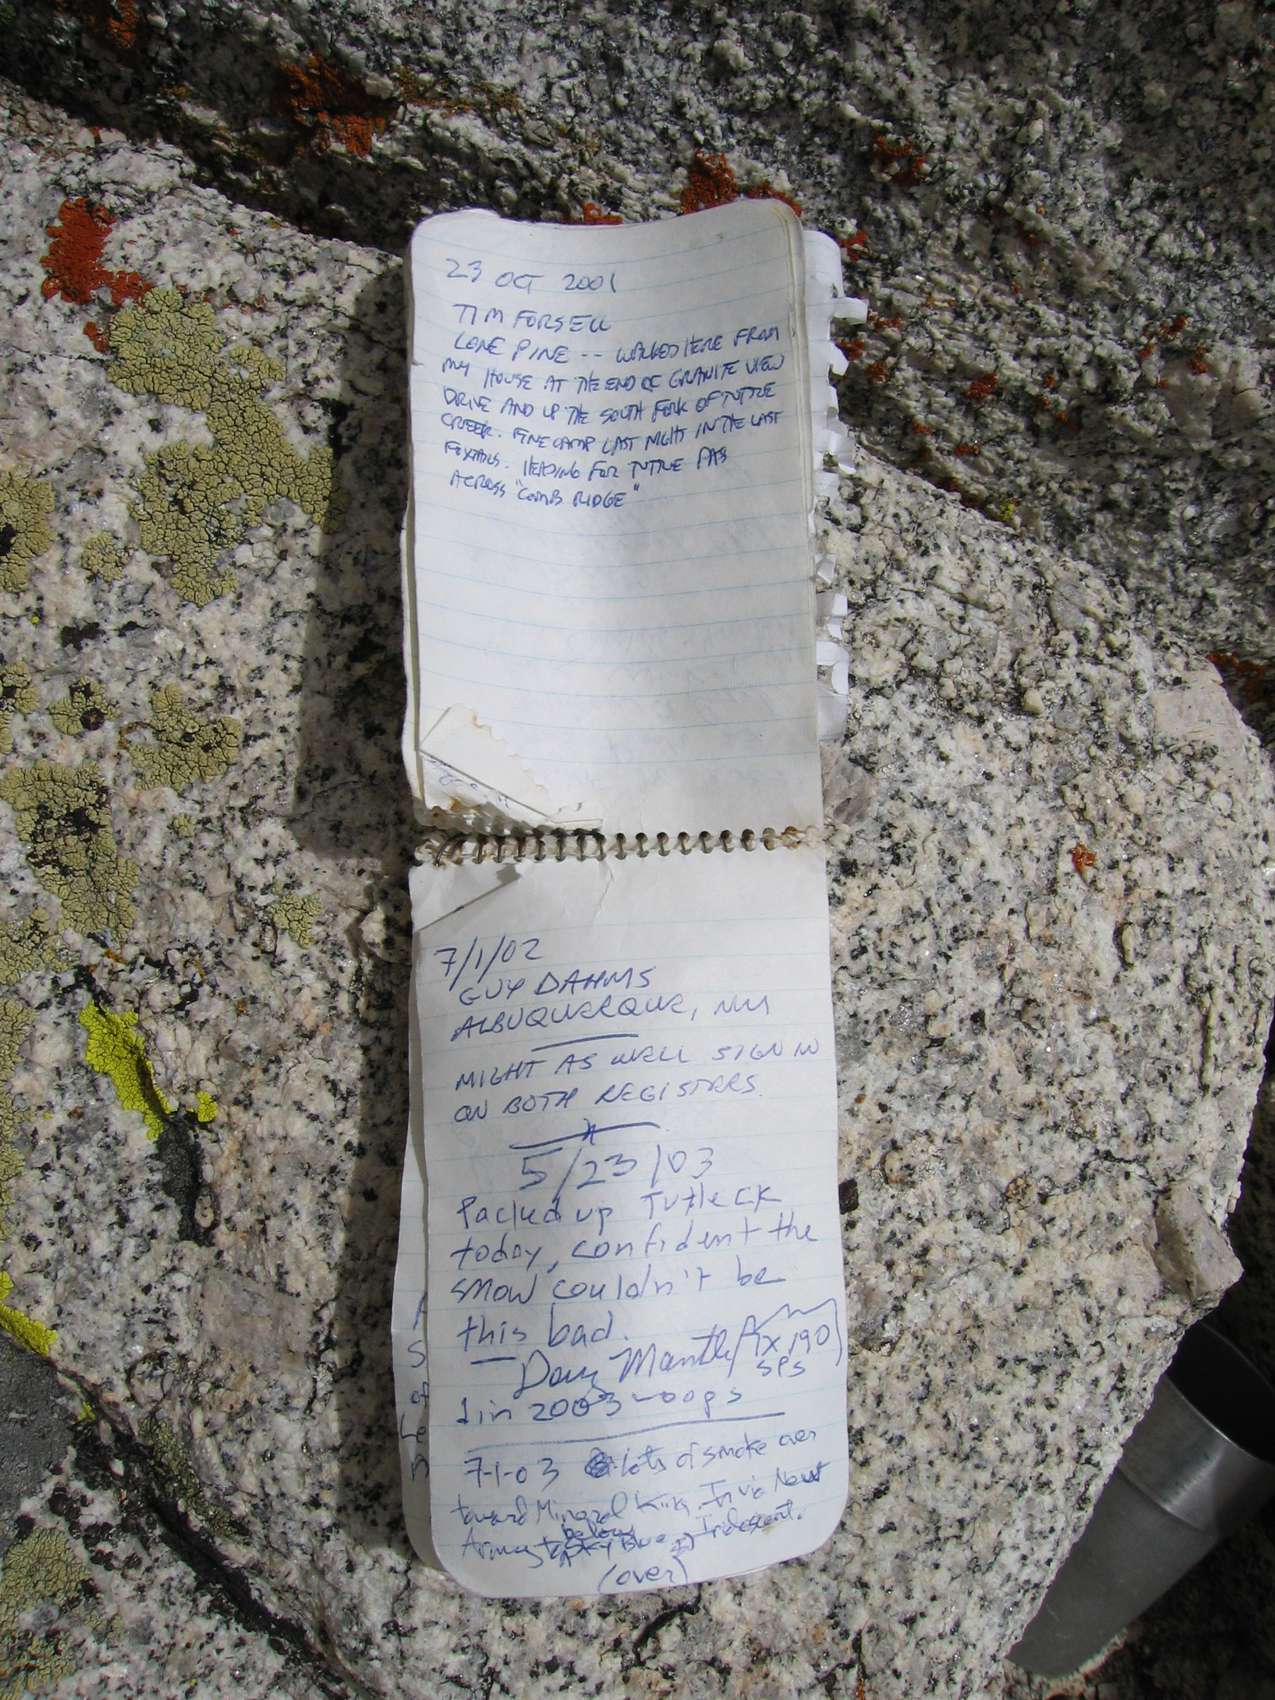 23 OCT 2001
TIM FORSELL
LONE PINE -- WALKED HERE FROM
MY HOUSE AT THE END OF GRANITE VIEW
DRIVE AND UP THE SOUTH FORK OF TUTTLE
CREEK. FINE CAMP LAST NIGHT IN THE LAST
FOXTAILS. HEADING FOR TUTTLE PASS
ACROSS "COMB RIDGE"
7/1/02
GUY DAHMS
ALBUQUERQUE, NM
MIGHT AS WELL SIGN IN
ON BOTH REGISTERS.
5/23/03
Packed up Tuttle CK
today, confident the
snow couldn't be
this bad.
— Doug Mantle
1x 190
SPS
1 in 2003 - oops
7-1-03 lots of smoke over
toward Mineral King. In via New
Army below Sky Blue Iridescent.
(over)